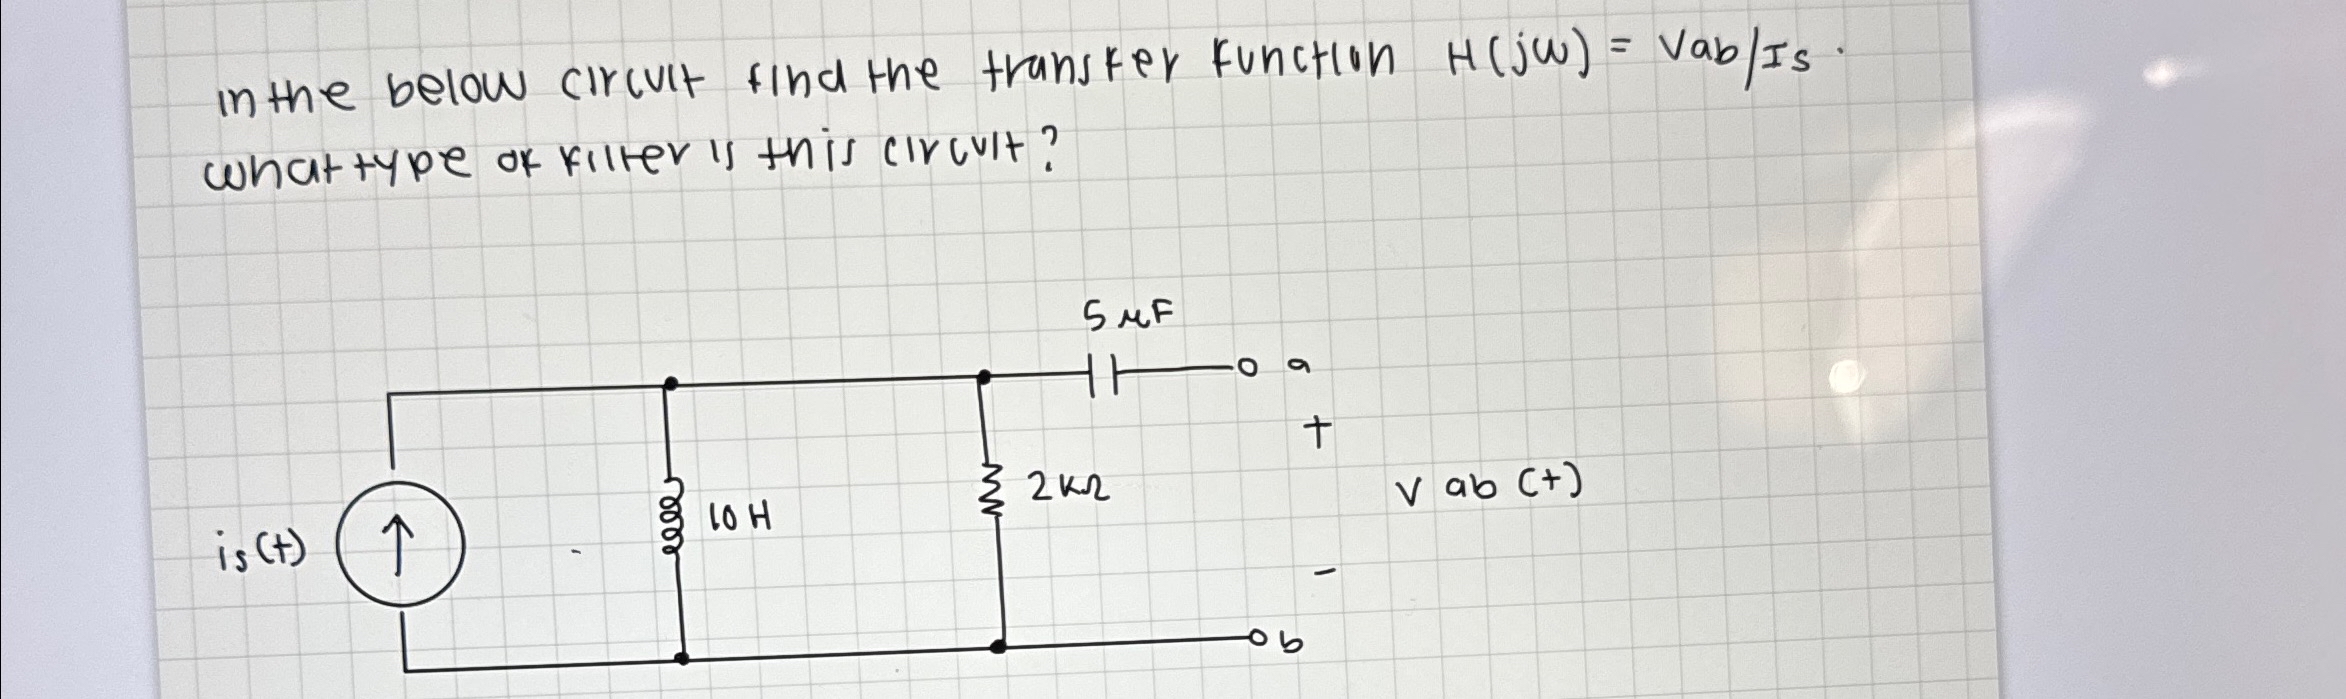 in the below circuit find the transfer function H(jω) = Vab/Is.
what type of filter is this circuit?
5 μF
a
+
10 H
2 kΩ
V ab (t)
is(t)
-
b